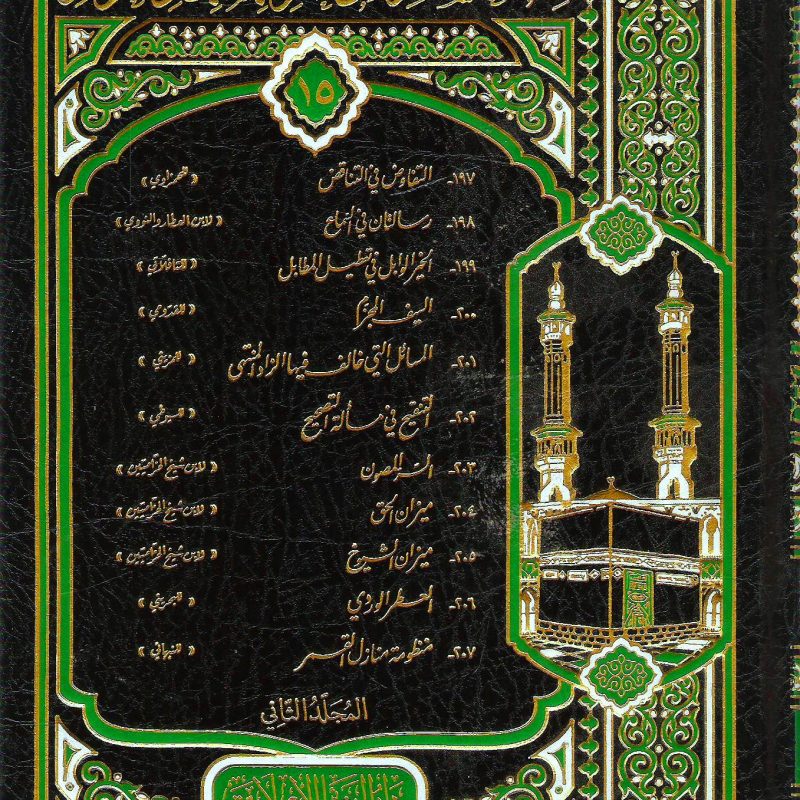 ١٥
١٩٧- التفاوض في التناقض « للحمزاوي »
١٩٨- رسالتان في السماع « لابن العطار والنووي »
١٩٩- الخير الوابل في تعطيل المطابل « للتافلاتي »
٢٠٠- السيف المجزم
٢٠١- المسائل التي خالف فيها الزاد المنتهى
٢٠٢- التنقيح في مسألة التصحيح « للسيوطي »
٢٠٣- السر المصون « لابن شيخ الحزاميين »
٢٠٤- ميزان الحق « لابن شيخ الحزاميين »
٢٠٥- ميزان الشيوخ « لابن شيخ الحزاميين »
٢٠٦- العطر الوردي
٢٠٧- منظومة منازل القمر « للنبهاني »
المجلد الثاني